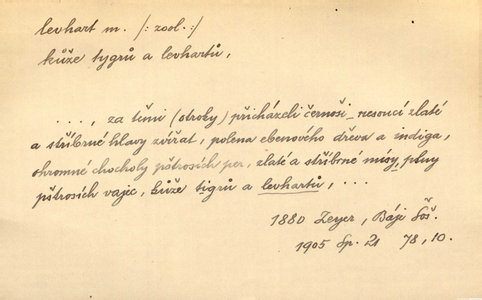 levhart m. /: zool. :/
kůže tygrů a levhartů,
. . . , za těmi (otroky) přicházeli černoši nesoucí zlaté
a stříbrné hlavy zvířat, polena ebenového dřeva a indiga,
ohromné chocholy pštrosích per, zlaté a stříbrné mísy plny
pštrosích vajec, kůže tigrů a levhartů, . . .
1880 Zeyer, Báje Šoš.
1905 Sp. 21 78, 10.